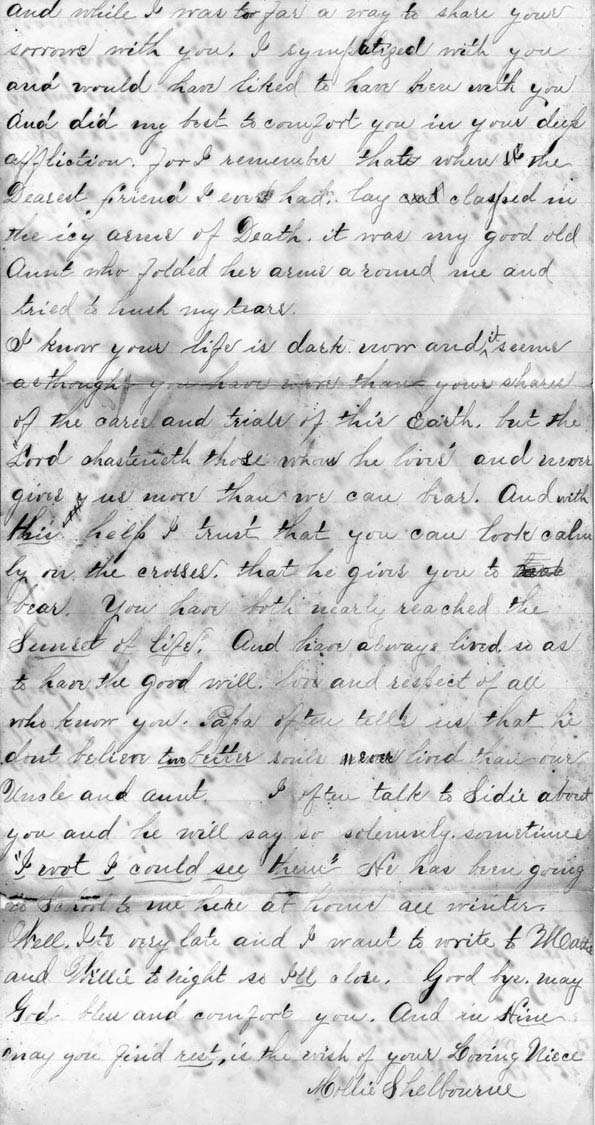 and while I was too far a way to share your
sorrows with you. I sympatized with you
and would have liked to have been with you
And did my best to comfort you in your deep
affliction. for I remember that where the
Dearest friend I ever had. lay clasped in
the icy arms of Death. it was my good old
Aunt who folded her arms a round me and
tried to hush my tears.
I know your life is dark now and it seems
as though you have more than your share
of the cares and trials of this Earth. but the
Lord chasteneth those whom he loves and never
gives us more than we can bear. And with
this help I trust that you can look calm
ly on the crosses. that he gives you to
bear. You have both nearly reached the
Sunset of life. And have always lived so as
to have the good will. love and respect of all
who know you. Papa often tells us that he
dont believe two better souls never lived than our
Uncle and aunt. I often talk to Sidie about
you and he will say so solemnly. sometimes
"I wot I could see them" He has been going
to School to me here at home all winter.
Well. Its very late and I want to write to
and Willie to night so I'll close. Good bye. may
God bless and comfort you. And in Hime
may you find rest, is the wish of your Loving Niece
Mollie Shelbourne